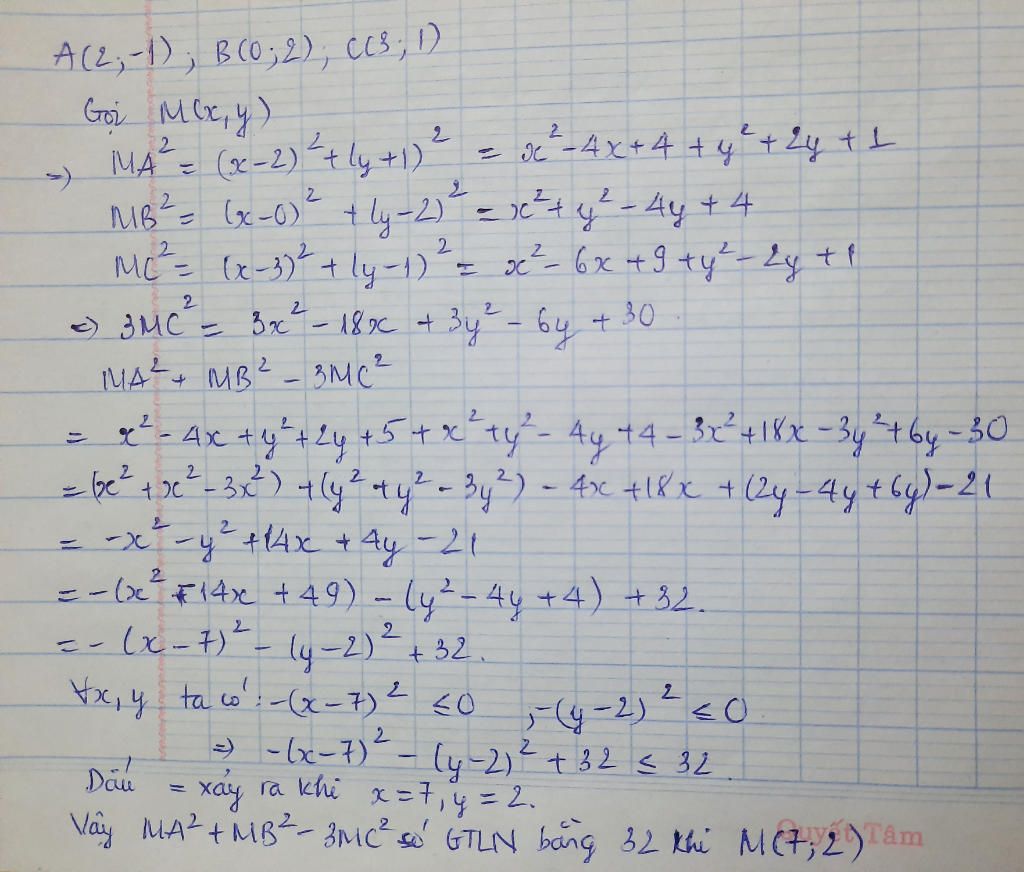 A(2;-1); B(0;2); C(3;1)
Gọi M(x,y)
=) MA² = (x-2)² + (y+1)² = x² - 4x + 4 + y² + 2y + 1
MB² = (x-0)² + (y-2)² = x² + y² - 4y + 4
MC² = (x-3)² + (y-1)² = x² - 6x + 9 + y² - 2y + 1
<=) 3MC² = 3x² - 18x + 3y² - 6y + 30.
MA² + MB² - 3MC²
= x² - 4x + y² + 2y + 5 + x² + y² - 4y + 4 - 3x² + 18x - 3y² + 6y - 30
= (x² + x² - 3x²) + (y² + y² - 3y²) - 4x + 18x + (2y - 4y + 6y) - 21
= -x² - y² + 14x + 4y - 21
= -(x² - 14x + 49) - (y² - 4y + 4) + 32.
= -(x-7)² - (y-2)² + 32.
∀x,y ta có: -(x-7)² ≤ 0 , -(y-2)² ≤ 0
=> -(x-7)² - (y-2)² + 32 ≤ 32.
Dấu = xảy ra khi x = 7, y = 2.
Vậy MA² + MB² - 3MC² có GTLN bằng 32 khi M(7;2)
Quyết Tâm